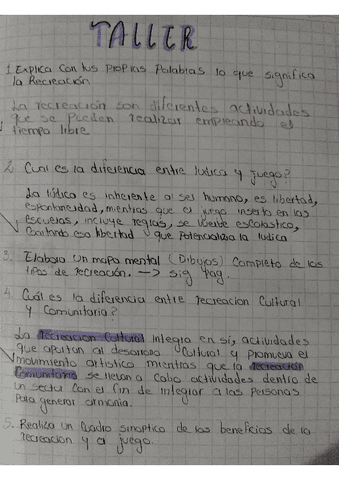 TALLER
1. Explica con tus propias palabras lo que significa
la Recreación
La recreación son diferentes actividades
que se pueden realizar empleando el
tiempo libre
2. Cual es la diferencia entre ludica y juego?
La lúdica es inherente al ser humano, es libertad,
espontaneidad, mientras que el juego inserto en las
escuelas, incluye reglas, se vuelve escolástico,
Coartando esa libertad que Potencializa la ludica
3. Elabora un mapa mental (Dibujos) Completo de los
tipos de recreación. → sig pag.
4. Cuál es la diferencia entre recreacion Cultural
y Comunitaria?
La recreacion Cultural integra en sí, actividades
que aportan al desarrollo Cultural y promueve el
movimiento artistico mientras que la recreación
Comunitaria se llevan a Cabo actividades dentro de
un sector con el fin de integrar a las Personas
Para generar armonía.
5. Realiza un Cuadro sinoptico de los beneficios de la
recreacion y el juego.